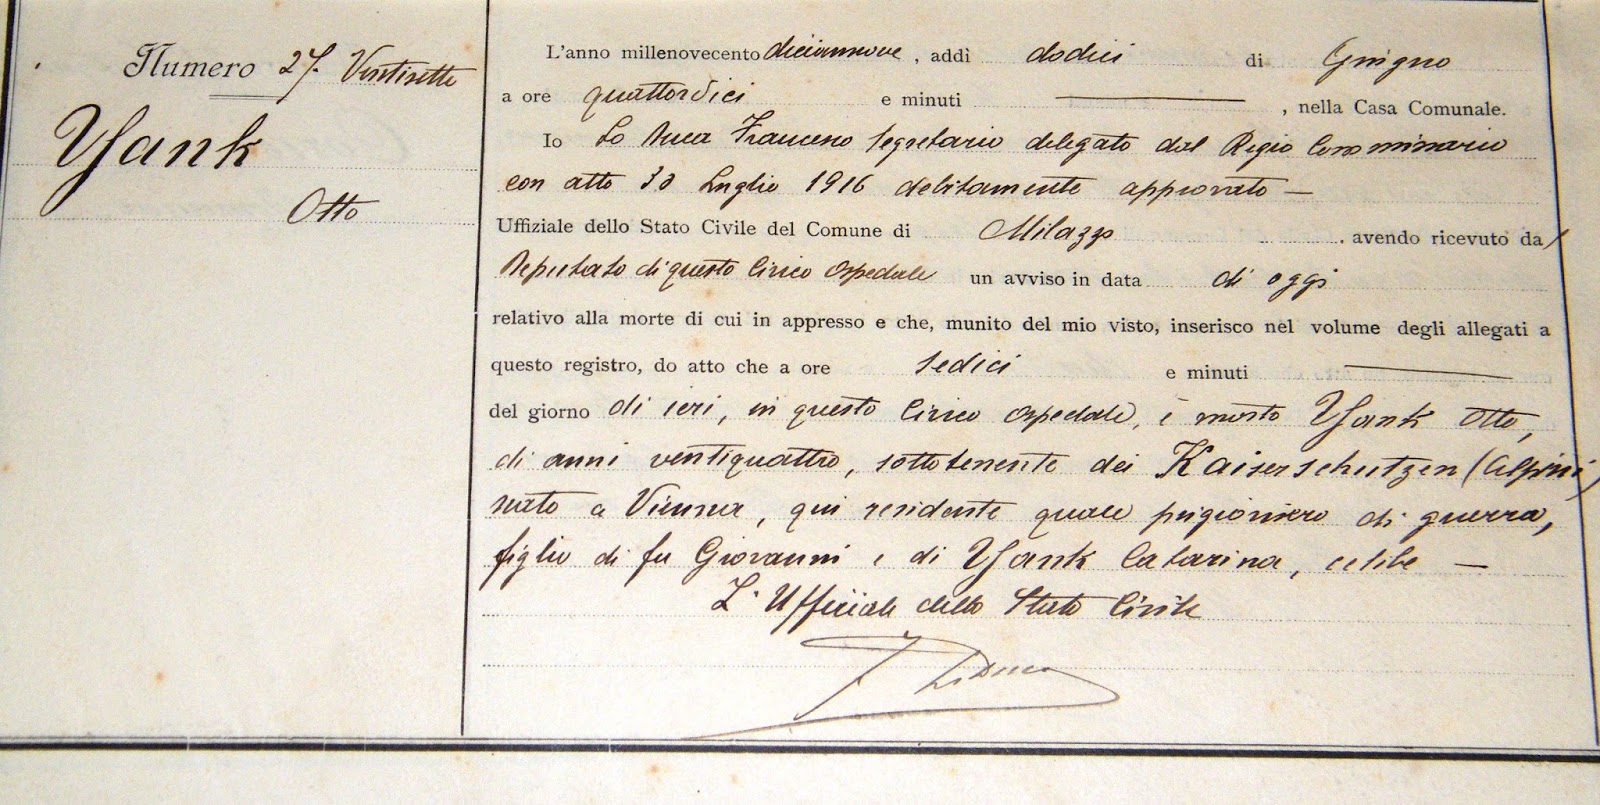 Numero 27. Ventisette
Yank
Otto
L'anno millenovecento diciannove, addì dodici di Giugno
a ore quattordici e minuti —, nella Casa Comunale.
Io Lo Duca Francesco Segretario delegato dal Regio Commissario
con atto 30 Luglio 1916 debitamente approvato —
Uffiziale dello Stato Civile del Comune di Milazzo avendo ricevuto dal
Deputato di questo Civico Ospedale un avviso in data di oggi
relativo alla morte di cui in appresso e che, munito del mio visto, inserisco nel volume degli allegati a
questo registro, do atto che a ore sedici e minuti —
del giorno di ieri, in questo Civico Ospedale, è morto Yank Otto,
di anni ventiquattro, sottotenente dei Kaiserschutzen (Alpini)
nato a Vienna, qui residente quale prigioniero di guerra,
figlio di fu Giovanni e di Yank Catarina, celibe —
L'Ufficiale dello Stato Civile
F. Lo Duca